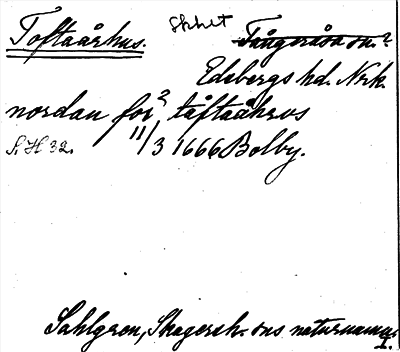 Toftaårhus. Skhlt Tångeråsa sn.?
Edsbergs hd. Nrk.
nordan for? tåftaåhrus
S. H 32. 11/3 1666 Bolby.
Sahlgren, Skagersh. sns naturnamn
I.